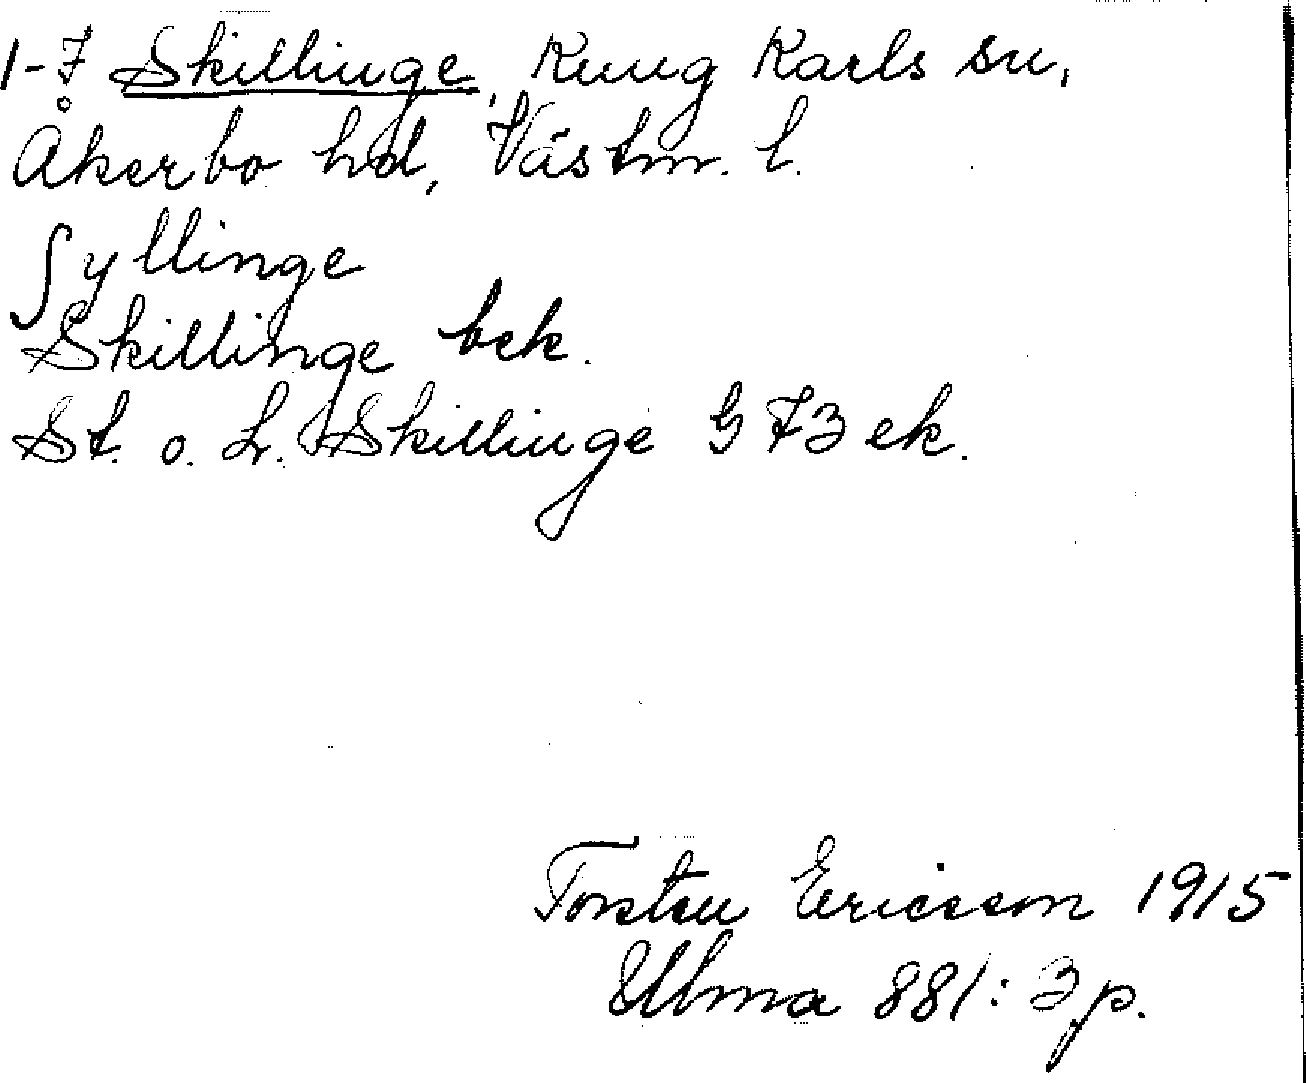 1-7 Skillinge, Kung Karls sn,
Åkerbo hd, Västm. l.
ʃyllinge
Skillinge bek.
St. o. L. Skillinge G 73 ek.
Torsten Ericsson 1915
Ulma 881:3 p.